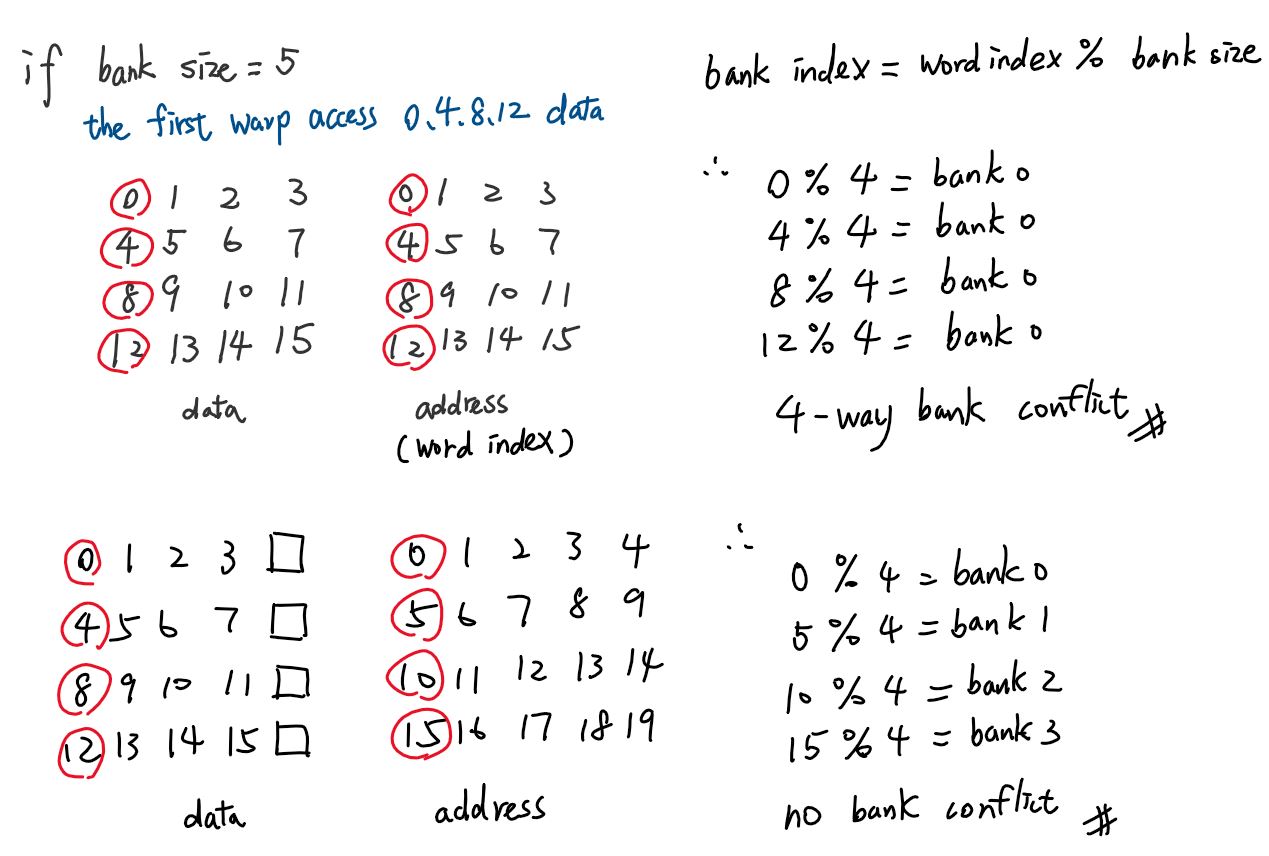 if bank size = 5
the first warp access 0、4、8、12 data
0 1 2 3
4 5 6 7
8 9 10 11
12 13 14 15
data
0 1 2 3
4 5 6 7
8 9 10 11
12 13 14 15
address
(word index)
bank index = word index % bank size
∴ 0 % 4 = bank 0
4 % 4 = bank 0
8 % 4 = bank 0
12 % 4 = bank 0
4-way bank conflict #
0 1 2 3 □
4 5 6 7 □
8 9 10 11 □
12 13 14 15 □
data
0 1 2 3 4
5 6 7 8 9
10 11 12 13 14
15 16 17 18 19
address
∴ 0 % 4 = bank 0
5 % 4 = bank 1
10 % 4 = bank 2
15 % 4 = bank 3
no bank conflict #